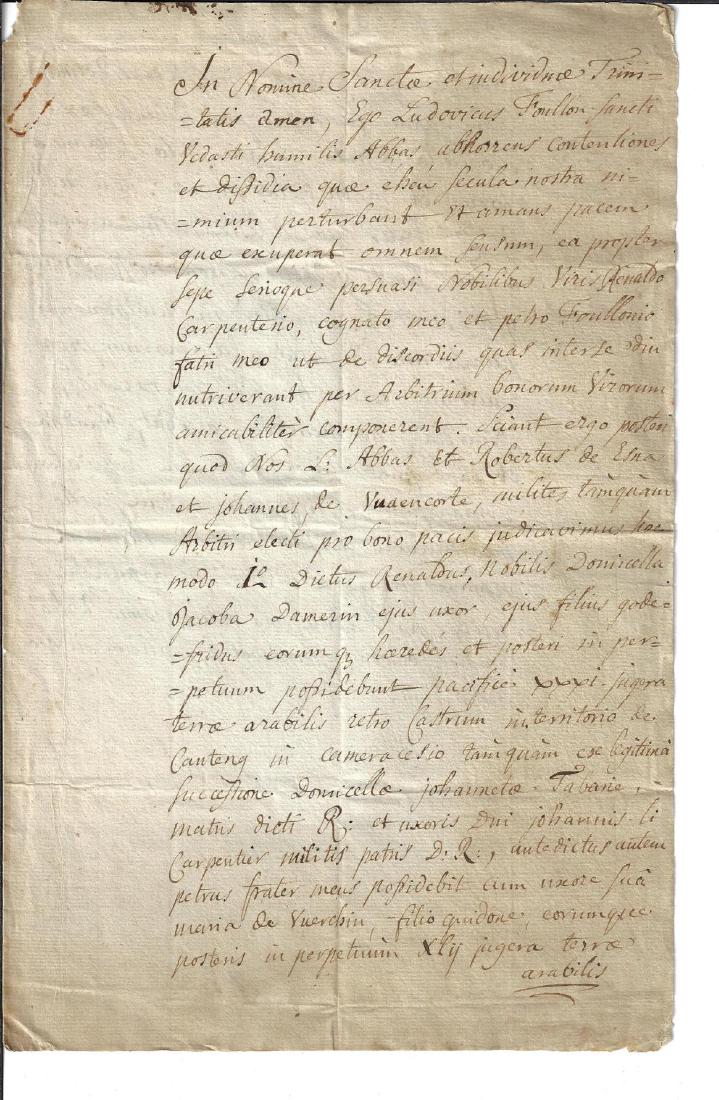 In Nomine Sanctæ et individuæ Trini=
=tatis amen, Ego Ludovicus Foullon sancti
Vedasti humilis Abbas abhorrens contentiones
et dissidia quæ eheu secula nostra ni=
=mium perturbant et amans pacem
quæ exuperat omnem sensum, ea propter
sepe serioque persuasi Nobilibus Viris Renaldo
Carpenterio, cognato meo et petro Foullonio
fatri meo ut de discordiis quas interse diu
nutriverant per Arbitrium bonorum Virorum
amicabilitèr componerent. Sciant ergo posteri
quod Nos L: Abbas et Robertus de Esna
et johannes de Vuaencorte, milites tàmquam
Arbitri electi pro bono pacis judicavimus hoc
modo 1º Dictus Renaldus, Nobilis Domicella
Jacoba Damerin ejus uxor, ejus filius gode=
=fridus eorumq hæredes et posteri in per=
=petuum possidebunt pacificè xxxi jugera
terræ arabilis retro Castrum in territorio de
Canteng in cameracesio tàmquàm ex legittimâ
successione Domicellæ johannetæ Tabarie,
matris dicti R: et uxoris Dni johannis li
Carpentier militis patris D: R:, antedictus autem
petrus frater meus possidebit cum uxore suâ
maria de Vuerchin, filio guidone, eorumque
posteris in perpetuum xlij jugera terræ
arabilis